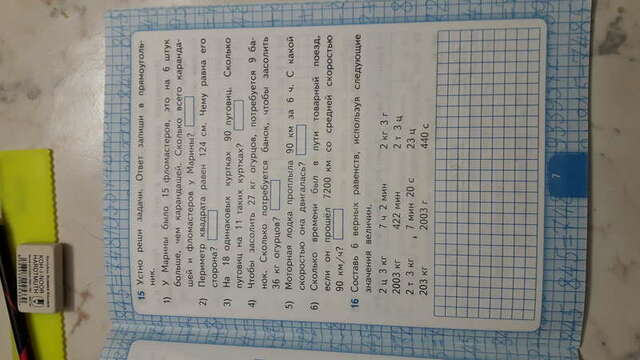 KOH-I-NOOR
HARDTMUTH
15 Устно реши задачи. Ответ запиши в прямоуголь-
ник.
1) У Марины было 15 фломастеров, это на 6 штук
больше, чем карандашей. Сколько всего каранда-
шей и фломастеров у Марины?
2) Периметр квадрата равен 124 см. Чему равна его
сторона?
3) На 18 одинаковых куртках 90 пуговиц. Сколько
пуговиц на 11 таких куртках?
4) Чтобы засолить 27 кг огурцов, потребуется 9 ба-
нок. Сколько потребуется банок, чтобы засолить
36 кг огурцов?
5) Моторная лодка проплыла 90 км за 6 ч. С какой
скоростью она двигалась?
6) Сколько времени был в пути товарный поезд,
если он прошёл 7200 км со средней скоростью
90 км/ч?
16 Составь 6 верных равенств, используя следующие
значения величин.
2 ц 3 кг 7 ч 2 мин 2 кг 3 г
2003 кг 422 мин 2 т 3 ц
2 т 3 кг 7 мин 20 с 23 ц
203 кг 2003 г 440 с
7